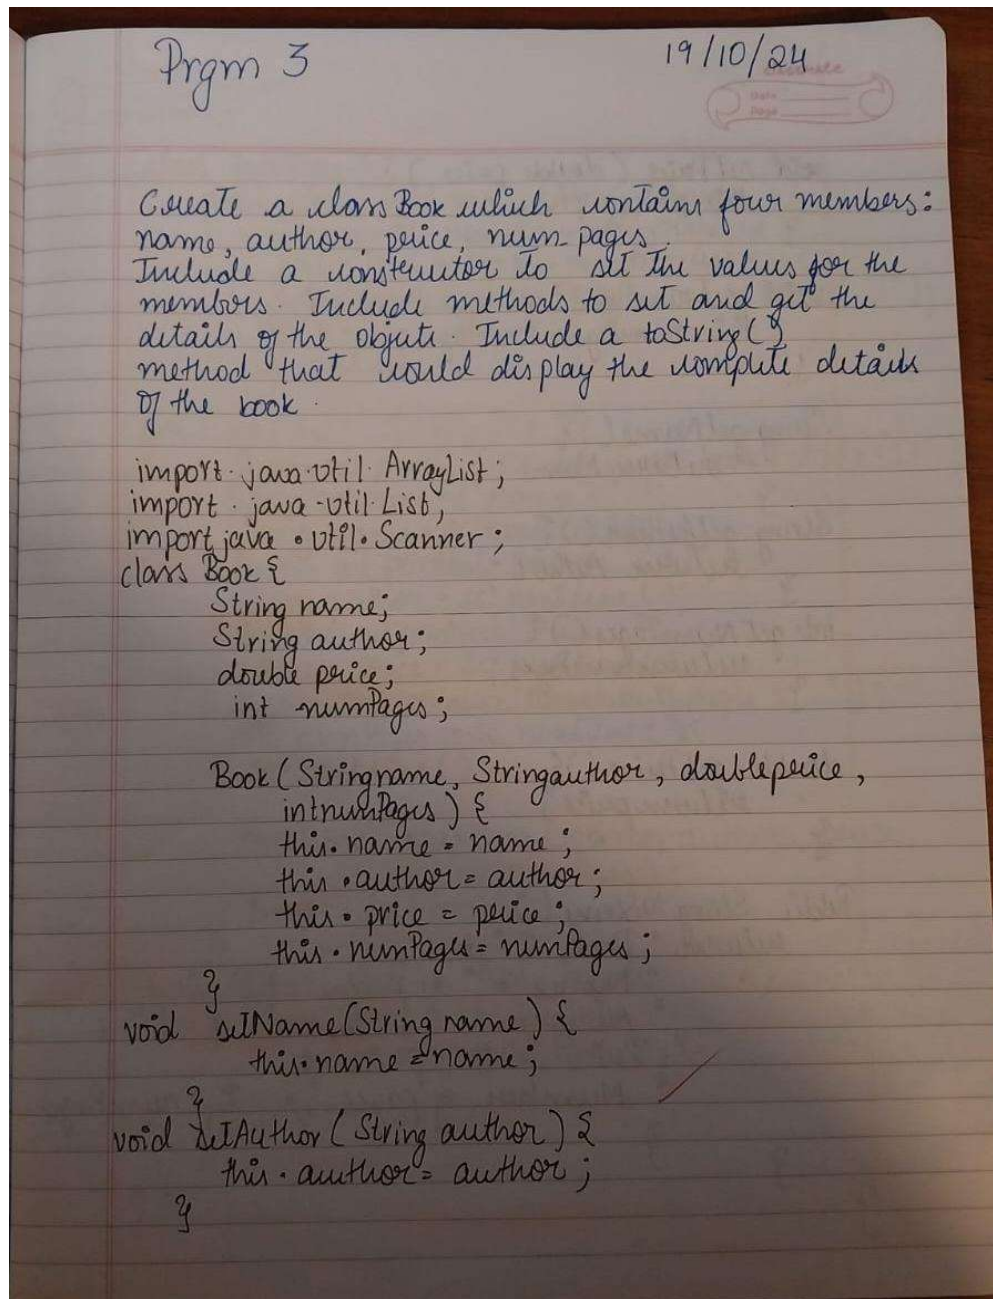 Prgm 3
19/10/24
Date
Page
Create a class Book which contains four members:
name, author, price, num_pages.
Include a constructor to set the values for the
members. Include methods to set and get the
details of the objects. Include a toString()
method that could display the complete details
of the book.
import.java.util.ArrayList;
import.java.util.List,
import java.util.Scanner;
class Book {
String name;
String author;
double price;
int numPages;
Book (Stringname, Stringauthor, doubleprice,
intnumPages) {
this.name = name;
this.author = author;
this.price = price;
this.numPages = numPages;
}
void setName(String name) {
this.name = name;
}
void setAuthor (String author) {
this.author = author;
}